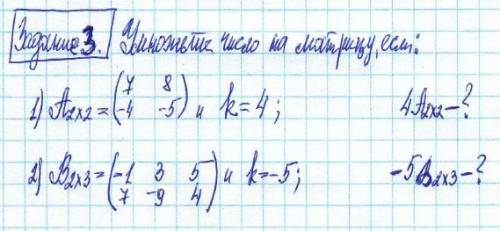 Задание 3. Умножьте число на матрицу, если:
1) A₂ₓ₂ = (7 8
-4 -5) и k = 4; 4A₂ₓ₂ - ?
2) B₂ₓ₃ = (-1 3 5
7 -9 4) и k = -5; -5B₂ₓ₃ - ?